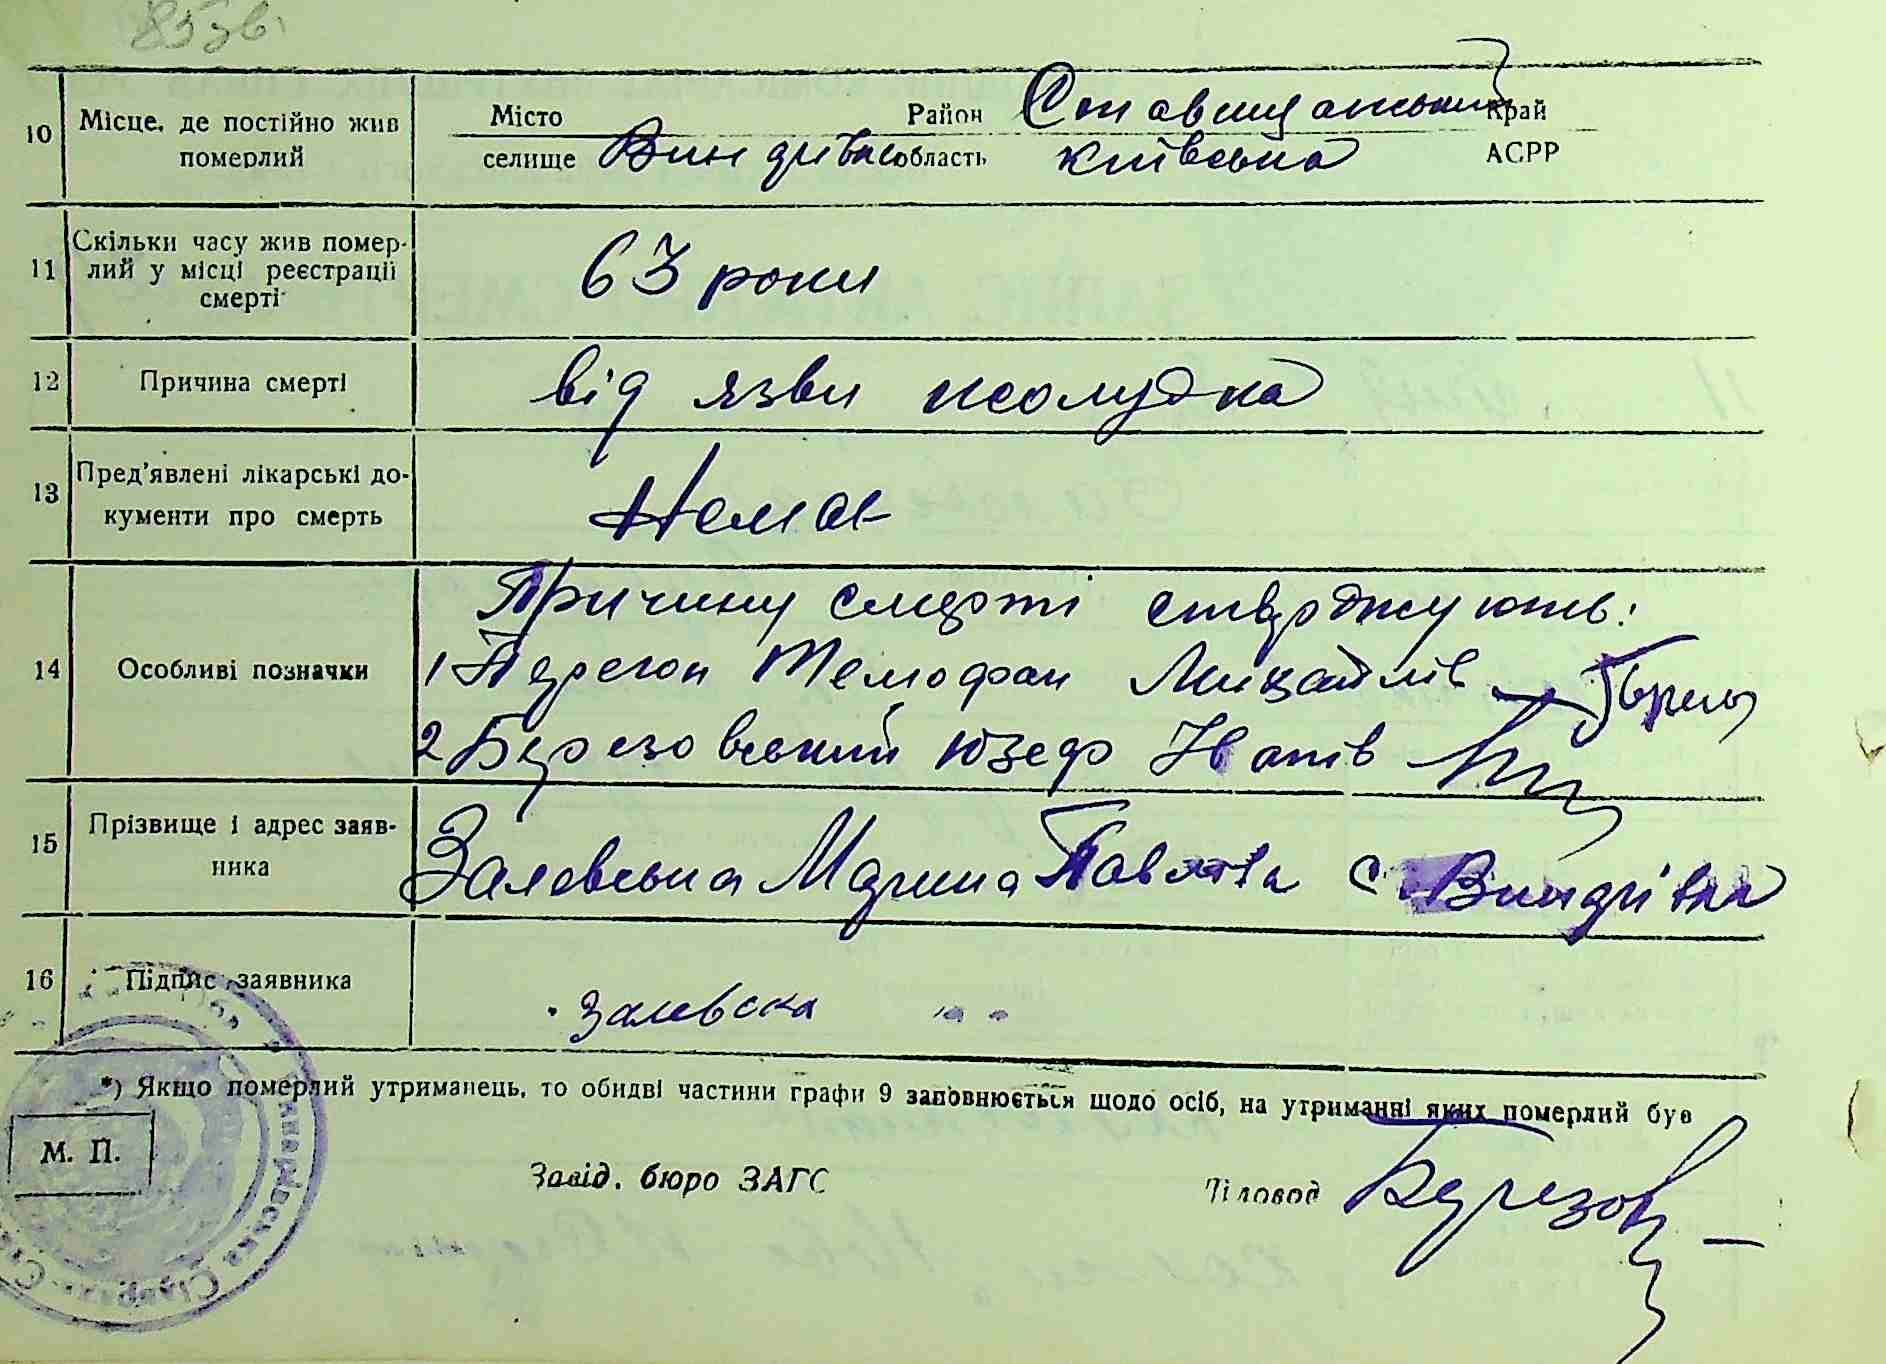 85зв.
10 Місце, де постійно жив померлий Місто Район Ставищанський Край
селище Винарівка область київська АСРР
11 Скільки часу жив помер-
лий у місці реєстрації
смерті 63 роки
12 Причина смерті від язви жолудка
13 Пред'явлені лікарські до-
кументи про смерть Нема
14 Особливі позначки Причину смерті стверджують:
1 Перегон Михайлів
2 Березовський Юзеф Іванів
15 Прізвище і адрес заяв-
ника Залевська Марина Павлівна с. Винарівка
16 Підпис заявника Залевска
*) Якщо померлий утриманець, то обидві частини графи 9 заповнюється щодо осіб, на утриманні яких померлий був
М. П.
Завід. бюро ЗАГС Діловод Березов